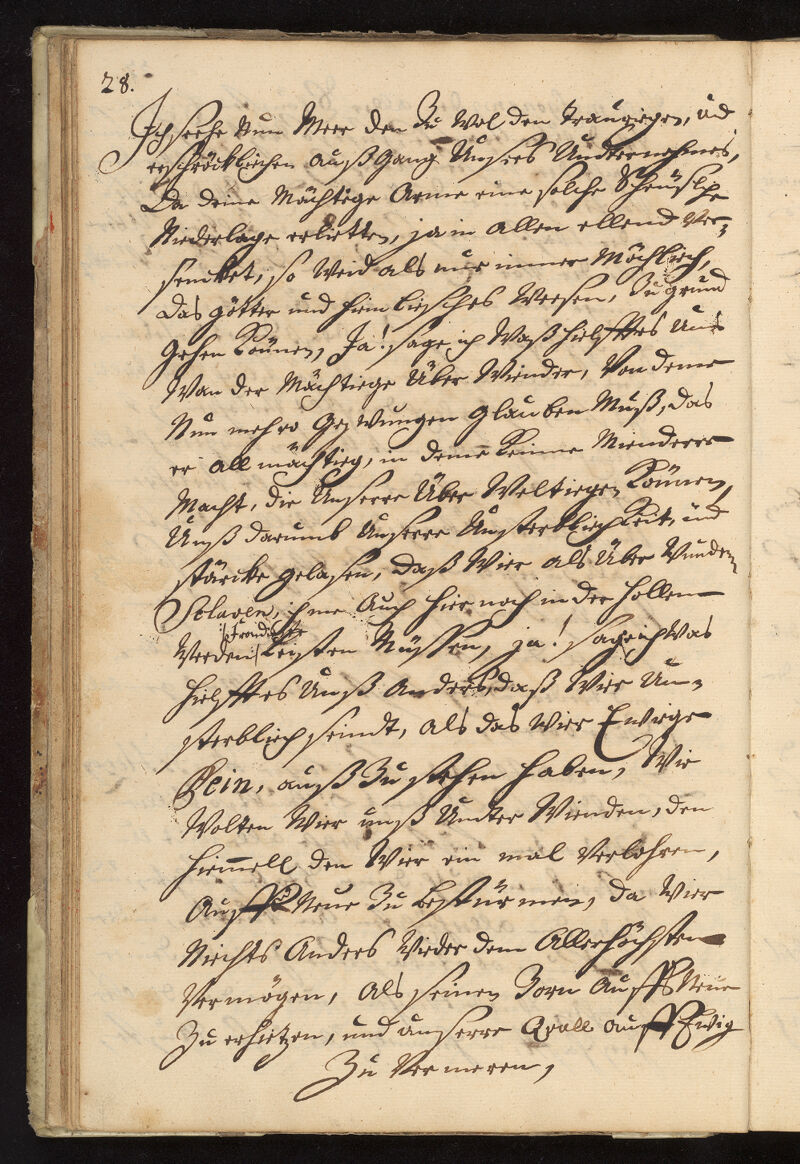 28.
Ich sehe Nun Meer den Zu Wol den Traurigen, und
erschröcklichen außgang Unsers Undternehmens,
Da deine Mächtige Arme eine solche Scheüsliche
Niederlage erlietten, ja in allen ellend Ver-
sencket, so Weid als nur immer Möchlich,
das götter und himlisches Weesen, Zu grund
gehen Können, Ja! sage ich Waß hielfft es Uns
Wan der Mächtiege Über Winder, Von deme
Nun mehro Gezwungen glauben Muß, das
er all mächtieg, in deme Keinne Mienderre
Macht, die Unserre Über Weltiegen Können,
Unß darumb Unserre Unsterbliechkeit, und
stärcke gelasen, daß Wier als Über Wunden
Sclaven, ihme Auch hier noch in der Hollen
Frondienste
Werden leisten Müssen, ja! sage ich Was
hielfft es Unß Anders, daß Wier Un-
sterbliech seindt, als das Wier Ewige
Pein, auß Zu stehen haben, Wie
Wolten Wier unß Undter Wienden, den
Hiemell den Wier ein mal Verlohren,
Auffs Neue Zu bestürmen, da Wier
Niechts Anders Wieder dem Allerhöchsten
Vermögen, Als seinen Zorn Auffs Neue
Zu erhietzen, und unserre Quall auff Ewig
Zu Vermeren,